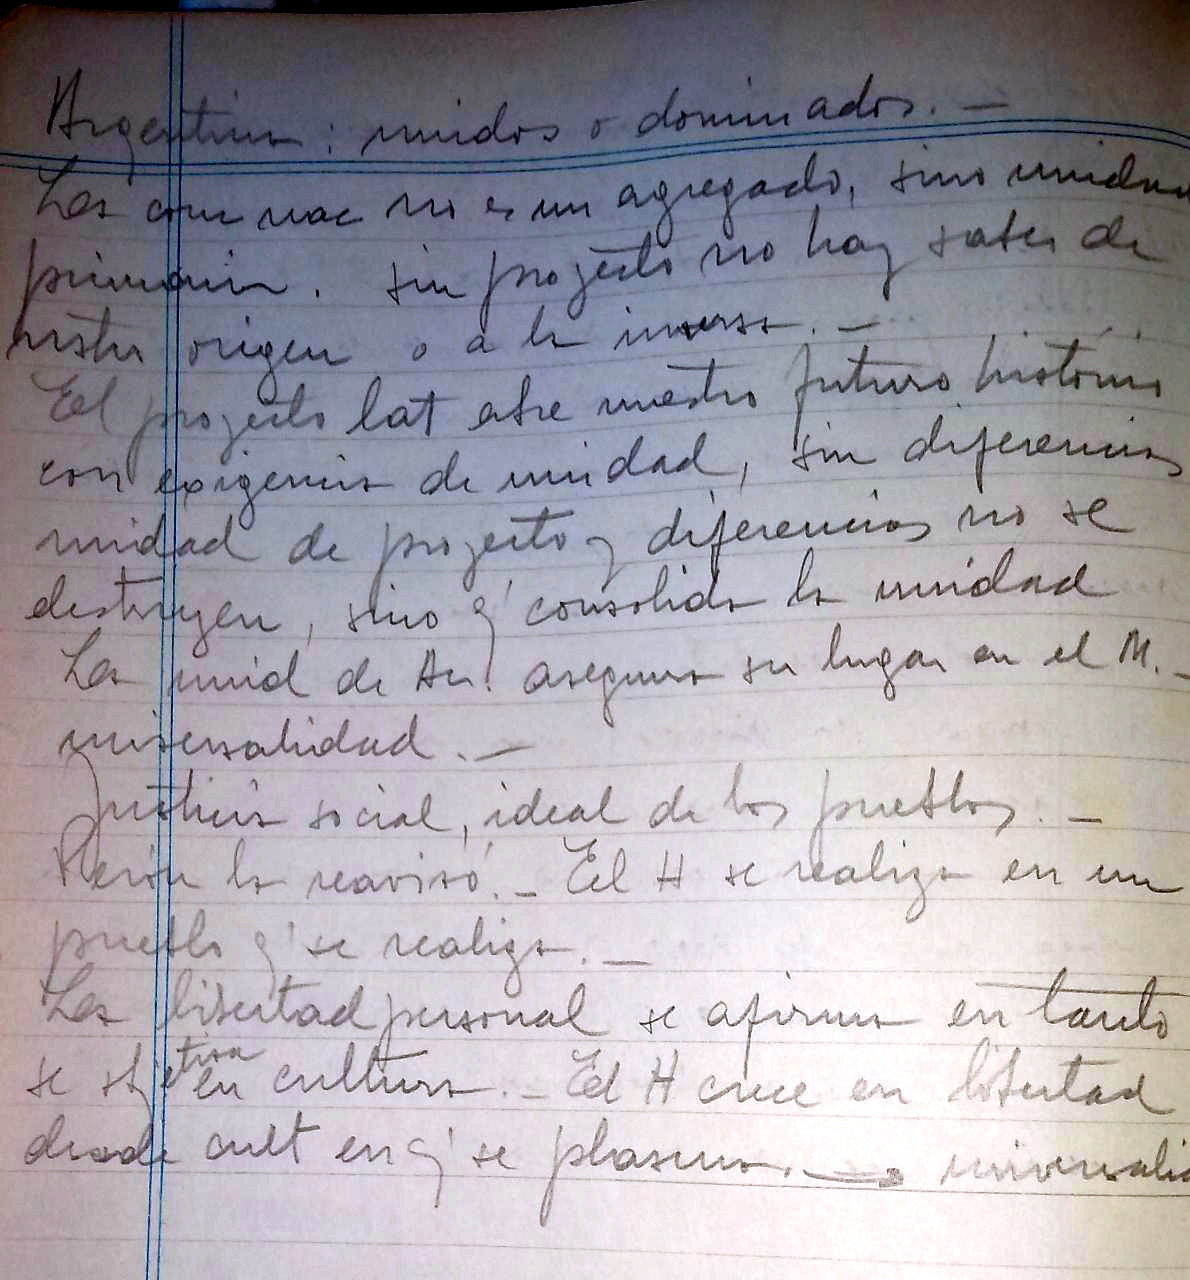 Argentina: unidos o dominados. —
La com nac no es un agregado, sino unidad
primaria. Sin proyecto no hay saber de
nstro origen o a la inversa. —
El proyecto lat abre nuestro futuro histórico
con exigencia de unidad, sin diferencias
unidad de proyecto y diferencias no se
destruyen, sino q' consolida la unidad
La unid de Am. asegura su lugar en el M. -
universalidad. —
Justicia social, ideal de los pueblos. —
Perón la reavisó. — El H se realiza en un
pueblo q' se realiza. —
La libertad personal se afirma en tanto
se objetiva en cultura. — El H crece en libertad
desde cult en q' se plasma. → universalid